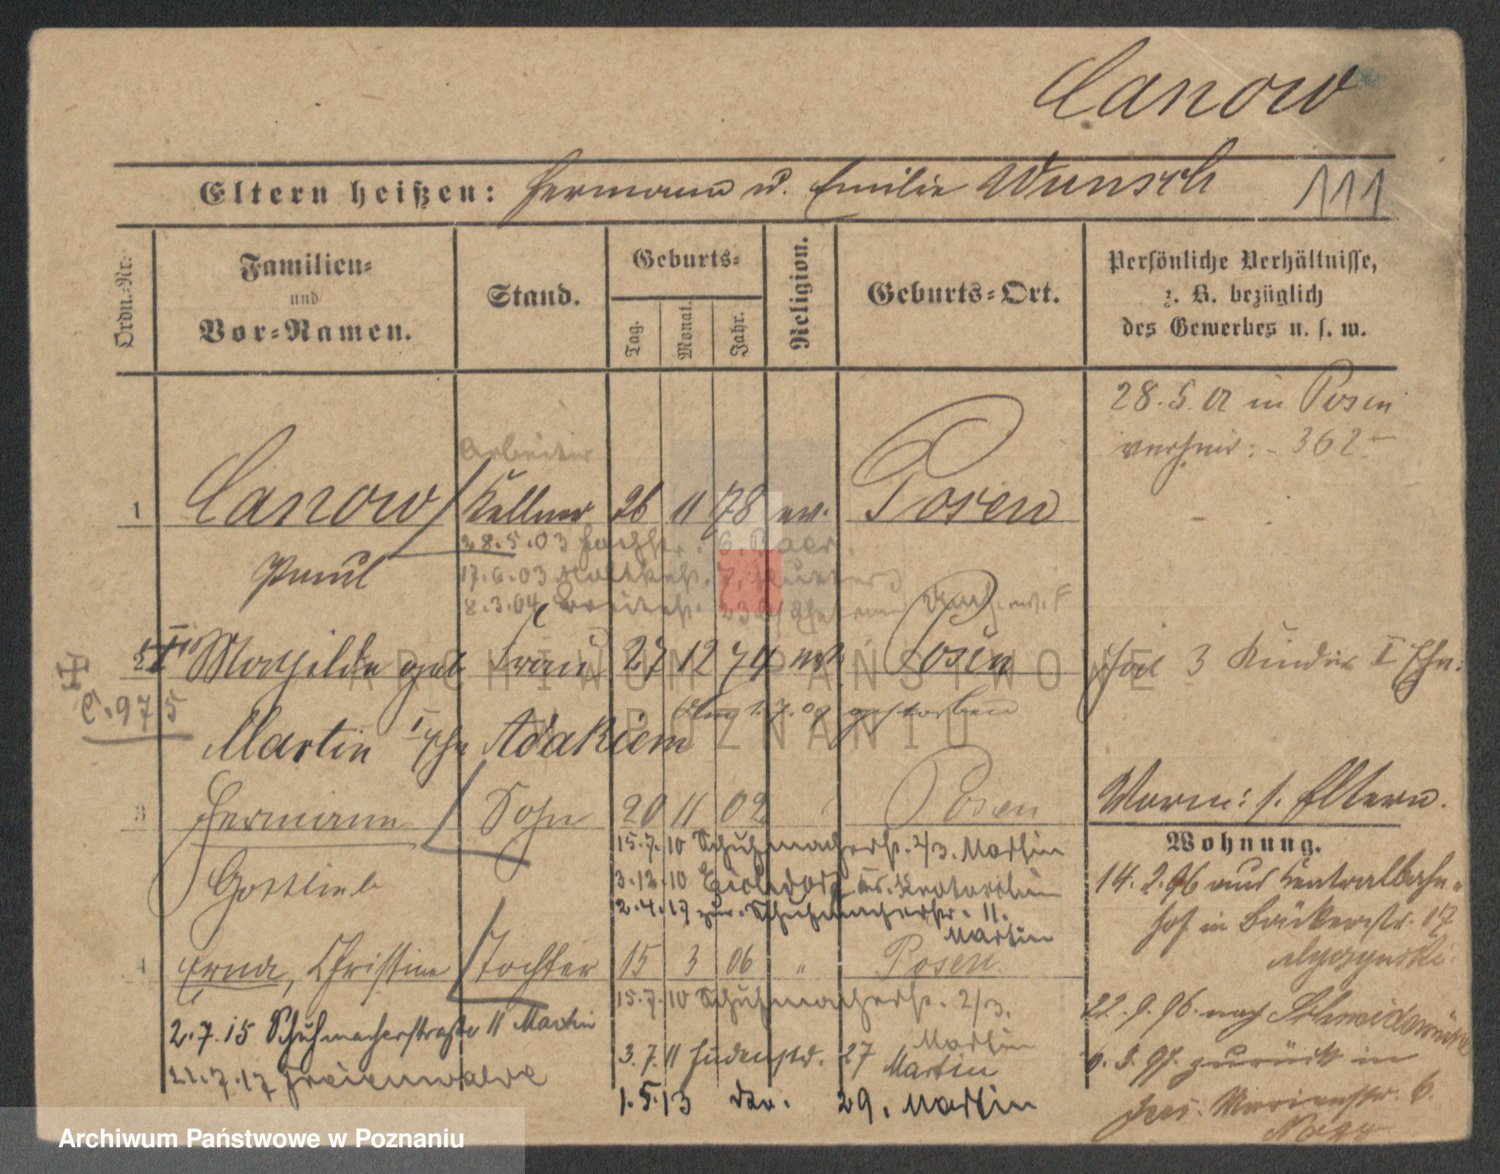 Canow
Eltern heißen: Hermann u. Emilie Wunsch 111
Ordn.-Nr.
Familien-
und
Vor-Namen.
Stand.
Geburts-
Tag.
Monat.
Jahr.
Religion.
Geburts-Ort.
Persönliche Verhältnisse,
z. B. bezüglich
des Gewerbes u. s. w.
28.5.01 in Posen
362
Arbeiter
1 Canow Kellner 26 11 78 ev. Posen
Paul
28.5.03
17.6.03
8.3.04
2 Mathilde geb Frau 27 12 74 Posen
hat 3 Kinder I Ehe.
C. 975
1.7.09 gestorben
Martin I Ehe Adakiem
3 Hermann Sohn 20 11 02 Posen
Gottlieb
Vorm: s. Eltern.
Wohnung.
15.7.10 Schuhmacherstr. 2/3. Martin
3.12.10
2.4.17 zur. Schuhmacherstr. 11.
Martin
14.2.96 aus Zentralbahn-
hof in Bäckerstr. 17
4 Erna, Christine Tochter 15 3 06 " Posen
15.7.10 Schuhmacherstr. 2/3.
Martin
2.7.15 Schuhmacherstraße 11 Martin
22.9.96 nach Schneidemühl
3.7.11 27 Martin
zurück in
22.7.17 Freienwalde
1.5.13 do. 29. Martin
6.
ARCHIWUM PAŃSTWOWE
W POZNANIU
Archiwum Państwowe w Poznaniu